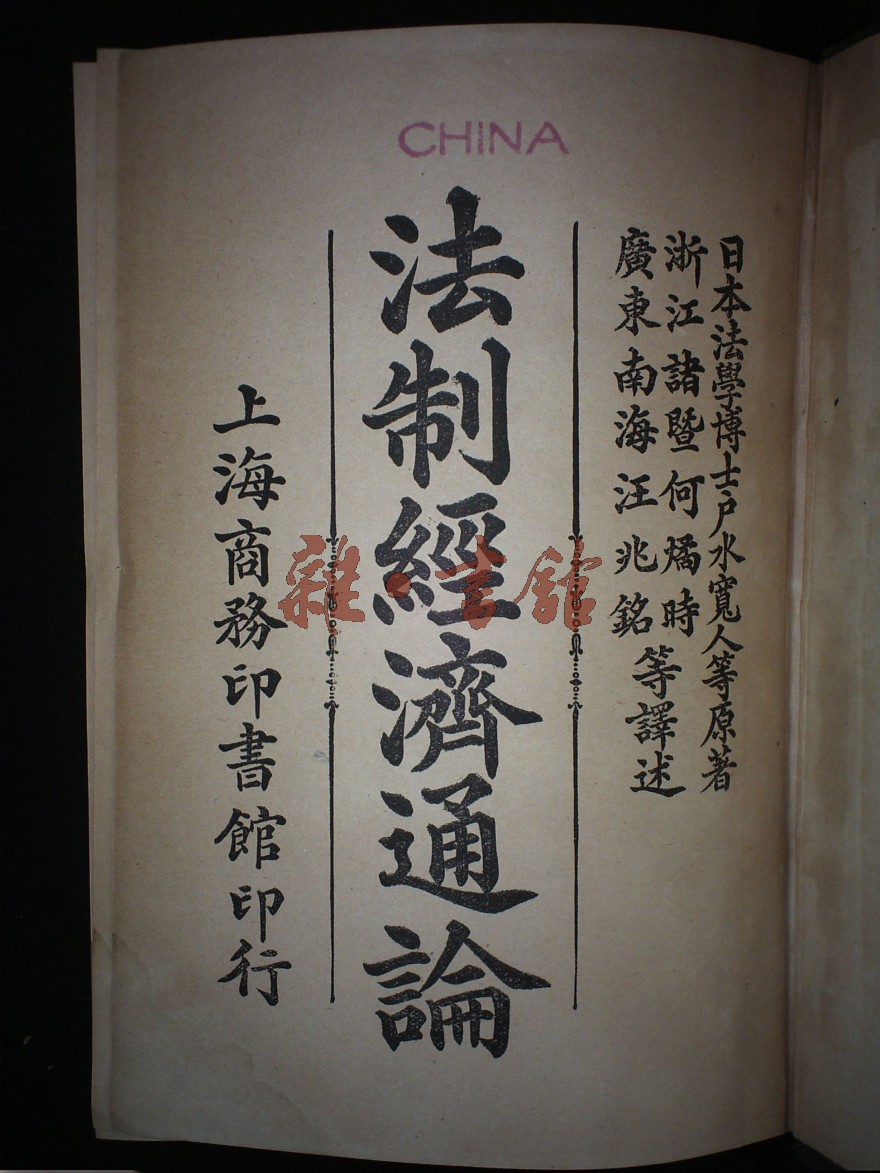 CHINA
日本法學博士戶水寬人等原著
浙江諸暨何燏時
廣東南海汪兆銘
等譯述
法制經濟通論
上海商務印書館印行
雜·書館